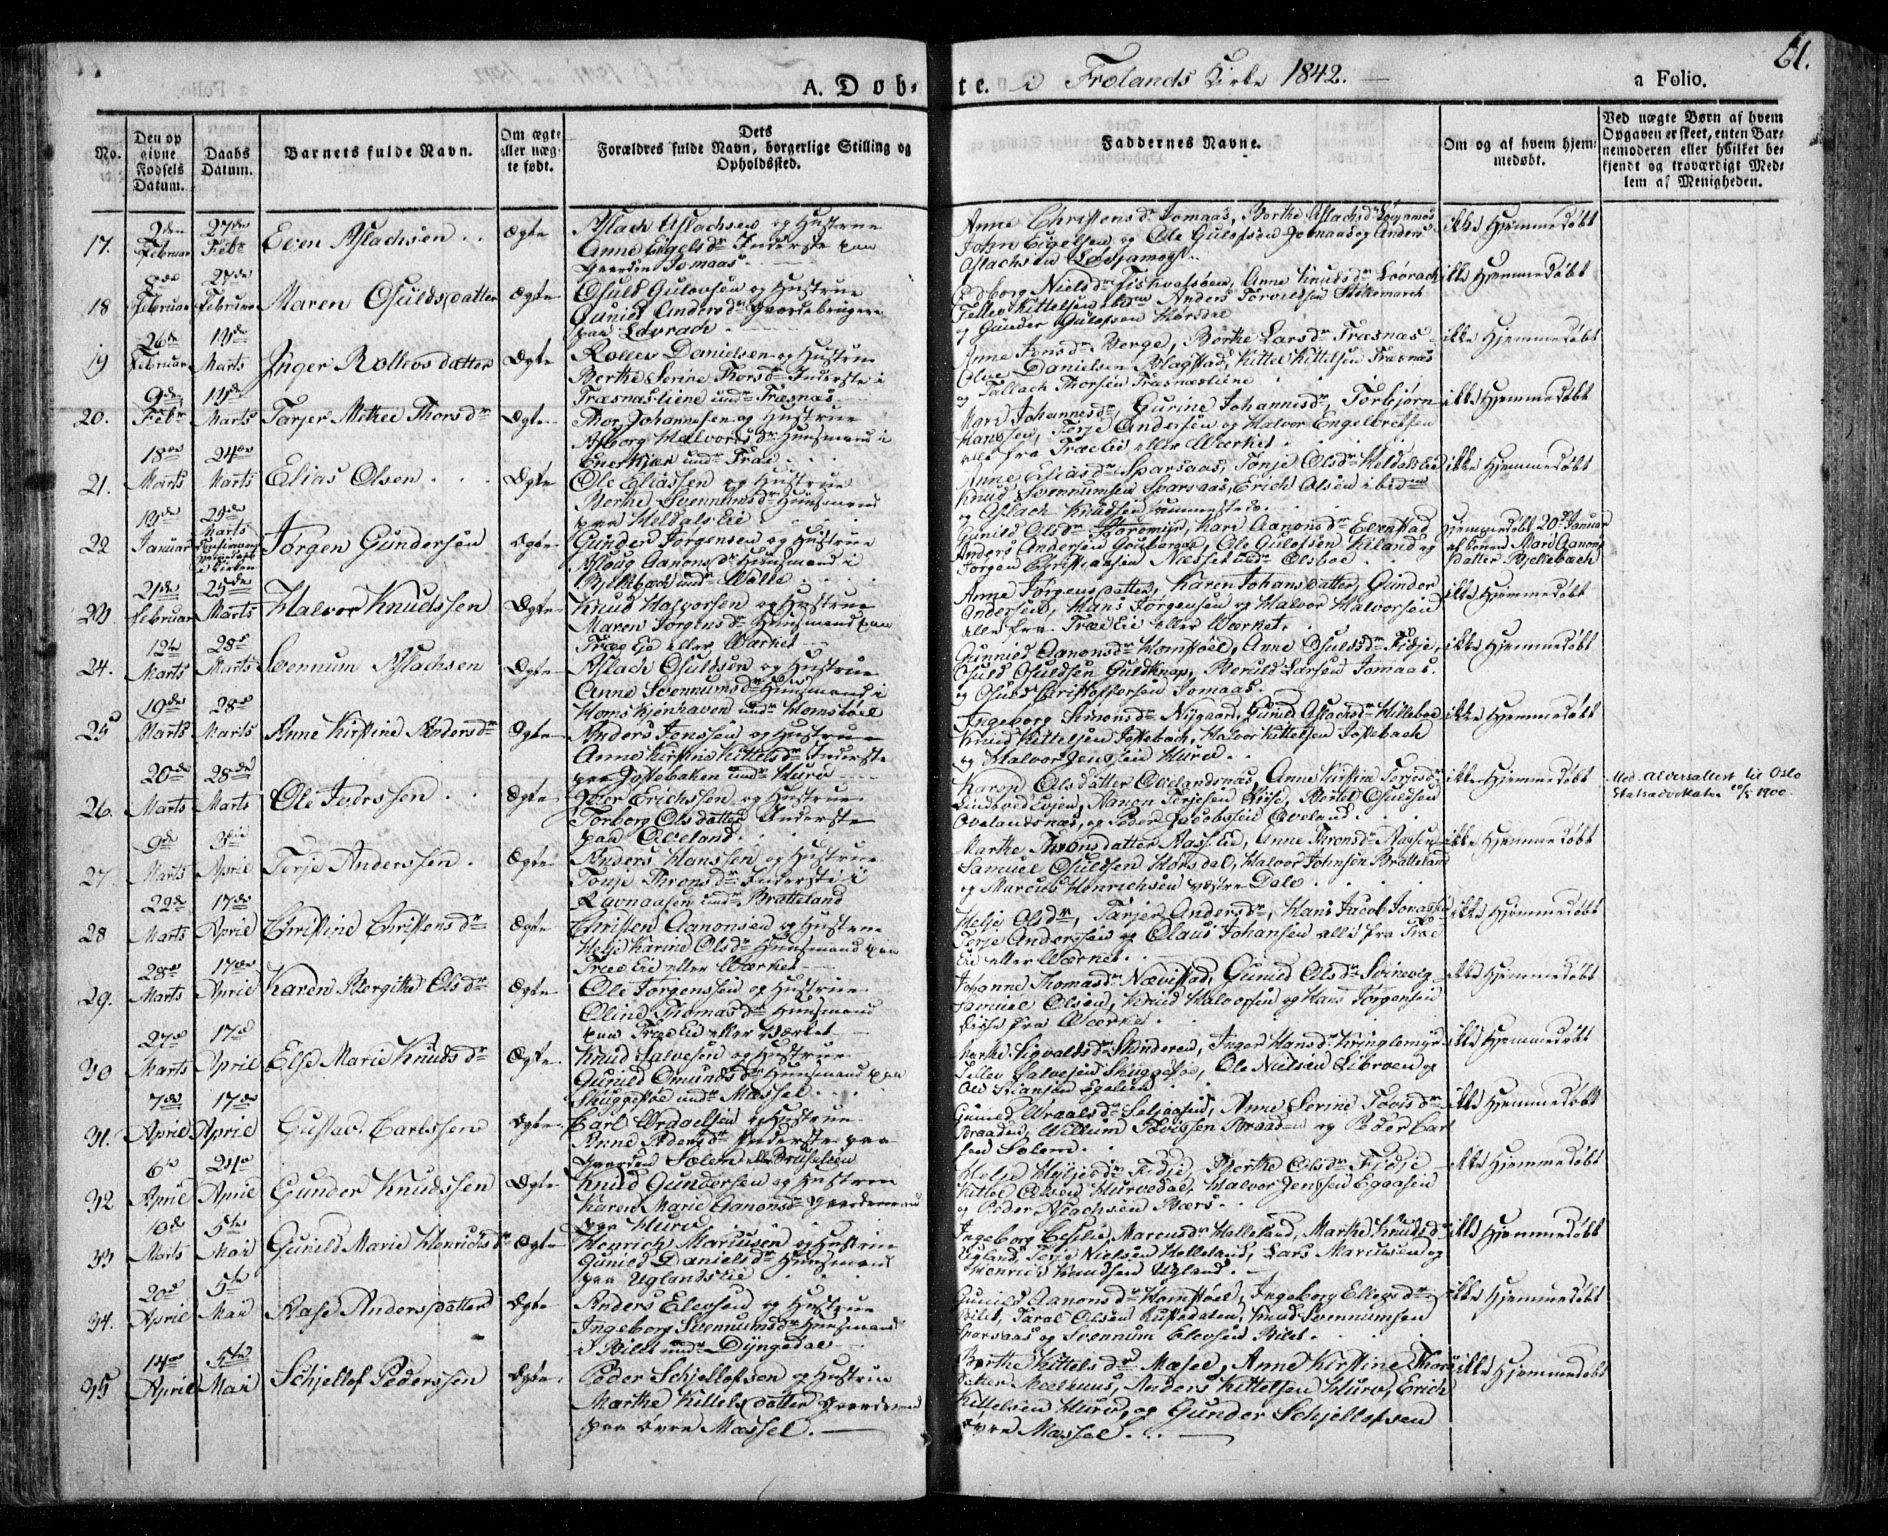 A. Døb-te. i Frolands Kirke 1842.
a Folio.
61.
No.
Den op
givne
Fødsels
Datum.
Daabs
Datum.
Barnets fulde Navn.
Om ægte
eller uæg-
te født.
Dets
Forældres fulde Navn, borgerlige Stilling og
Opholdssted.
Faddernes Navne.
Om og af hvem hjem-
medøbt.
Ved uægte Børn af hvem
Opgaven er skeet, enten Bar-
nemoderen eller hvilket be-
kjendt og troværdigt Med-
lem af Menigheden.
17. 2den Februar 27de Febr Even Aslachsen Ægte
Aslach Aslachsen og Hustrue
Anne Eigelsdr Inderste paa
Gaarden Jomaas
Anne Christensdr Jomaas, Berthe Aslachsdr
John Eigelsen og Ole Gulofsen Jomaas og Anders
Aslachsen
ikke Hjemmedøbt
18 8de Februar 27de Februar Maren Osuldsdatter Ægte
Osuld Gulovsen og Hustrue
Gunild Andersdr Gaardebrugere
paa Lovrach
Nielsdr Anne Knudsdr Lovrach
Tellev Kittelsen Anders Torvildsen
og Gunder Gulofsen
ikke Hjemmedøbt
19 26de Februar 13de Marts Inger Rollevsdatter Ægte
Rollev Danielsen og Hustrue
Berthe Serine Thorsdr Inderste i
Træsnesliene undr Træsnæs
Anne Jensdr Berge, Berthe Larsdr Træsnæs
Danielsen Blagstad, Kittel Kittelsen Træsnæs
og Tallach Thorsen Træsnæsliene
ikke Hjemmedøbt
20. 9de Febr 13de Marts Tarjer Mikkel Thorsdr Ægte
Thor Johannesen og Hustrue
Asborg Halvorsdr Huusmand i
undr Træe
Mari Johannesdr, Gurine Johannisdr, Torbjørn
Hansen, Terje Andersen og Halvor Engelbretsen
alle fra Træe Eie eller Værket
ikke Hjemmedøbt
21. 18de Marts 24de Marts Elias Olsen Ægte
Ole Eliassen og Hustrue
Berthe Svennumsdr Huusmand
paa Heldals Eie
Anne Eliasdr Sparsaas, Tonje Olsdr Heldals Eie
Knud Svennumsen Sparsaas, Erich Olsen ibidem
og Aslach Knudsen
ikke Hjemmedøbt
22 19de Januar 25de Marts Jørgen Gundersen Ægte
Gunder Jørgensen og Hustrue
Aslaug Aanonsdr Huusmand i
Bjellebæch undr Mølle
Gunild Olsdr Kari Aanonsdr Evenstad
Anders Andersen Ole Gulofsen Kiland og
Jørgen Christiansen Næsset undr
Hjemmedøbt 20de Januar
af Konen Mari Aanons
datter Bjellebæch
23. 21de Februar 25de Marts Halvor Knudssen Ægte
Knud Halvorsen og Hustrue
Maren Jørgensdr Huusmand paa
Træe Eie eller Værket
Anne Jørgensdatter, Karen Johansdatter, Gunder
Andersen, Hans Jørgensen og Halvor Halvorsen
alle fra Træe Eie eller Værket.
ikke Hjemmedøbt
24. 12te Marts 28de Marts Svennum Aslachsen Ægte
Aslach Osuldsen og Hustrue
Anne Svennumsdr Huusmand i
undr Homstøel
Gunnild Aanonsdr Homstøel, Anne Osuldsdr Fidje,
Osuld Osuldsen Guldknap, Berulf Larsen Jomaas.
og Osuld Christoffersen Jomaas.
ikke Hjemmedøbt
25 19de Marts 28de Marts Anne Kirstine Andersdr Ægte
Anders Jenssen og Hustrue
Anne Kirstine Kittelsdr Inderste
paa Jossebakken undr Hurv
Ingeborg Simonsdr Nygaard, Gunild Aslachsdr Hilleboe
Knud Kittelsen Jossebach, Halvor Kittelsen Jossebach
og Halvor Jenssen Hurv
ikke Hjemmedøbt
26. 20de Marts 28de Marts Ole Iverssen Ægte
Iver Erichssen og Hustrue
Torborg Olsdatter Inderste
paa Oveland
Karen Olsdatter Ovelandsnæs, Anne Kirstine Terjesdr
Aanon Terjesen Bertel Osuldsen
Ovelandsnæs, og Peder Jacobssen Oveland
ikke Hjemmedøbt
Med. Aldersattest til Oslo
Statsadvokater 1900.
27. 9de Marts 3die April Terje Anderssen Ægte
Anders Hanssen og Hustrue
Tonje Thronsdr Inderste i
undr Bratteland
Marthe Thronsdatter Anne Thronsdr
Samuel Osuldsen Halvor Johnsen Bratteland
og Marcus Henrichsen Vestre Dale
ikke Hjemmedøbt
28 22de Marts 17de April Christine Christensdr Ægte
Christen Aanonsen og Hustrue
Helje Karine Olsdr Huusmand paa
Træe Eie eller Værket
Helje Olsdr, Tarjer Andersdr, Hans Jacob Jonassen
Terje Anderssen og Olaus Johansen alle fra Træe
Eie eller Værket.
ikke Hjemmedøbt
29. 28de Marts 17de April Karen Birgithe Olsdr Ægte
Ole Jørgenssen og Hustrue
Oline Thomasdr Huusmand
paa Træe Eie eller Værket
Johanne Thomasdr Nævestad, Gunild Olsdr Svinevig
Samuel Olsen, Knud Halvorsen og Hans Jørgensen
fra Værket
ikke Hjemmedøbt
30 27de Marts 17de April Else Marie Knudsdr Ægte
Knud Salvesen og Hustrue
Gunild Omundsdr Huusmand paa
Skuggestøe undr Massel
Marthe Sigvaldsdr Inger Hansdr Kringlemyr
Tellev Salvesen Skuggestøe, Ole Nielsen og
Ole Stiansen
ikke Hjemmedøbt
31. 7de April 17de April Gustav Carlssen Ægte
Carl Vraalsen og Hustrue
Anne Pedersdr Inderste paa
Gaarden Solem
Gunild Vraalsdr Anne Serine Tovisdr
Braaden, Willum Tovissen Braaden og Peder Carl
sen Solem
ikke Hjemmedøbt
32 6te April 24de April Gunder Knudssen Ægte
Knud Gundersen og Hustrue
Karen Marie Aanonsdr Gaardemand
paa Hurv
Helje Fidje, Berthe Olsdr Fidje
Kittel Olsen Hurvedal, Halvor Jenssen
og Peder Aslachsen
ikke Hjemmedøbt
33 10de Marts 5te Mai Gunild Marie Henrichsdr Ægte
Henrich Marcusen og Hustrue
Gunild Danielsdr Huusmand
paa Uglands Eie
Ingeborg Cesilie Marcusdr Helleland, Marthe Knudsdr
Ugland, Terje Nielsen Helleland, Lars Marcusen og
Henrich Knudsen Ugland.
ikke Hjemmedøbt
34. 20de April 5te Mai Aase Andersdatter Ægte
Anders Elevsen og Hustrue
Ingeborg Svennumsdr Huusmand
i Bilet undr Dyngedal
Gunild Aanonsdr Homstøel, Ingeborg Ellevsdr
Bilet, Taral Olsen Knud Svennumsen
Sparsaas og Svennum Elevsen Bilet.
ikke Hjemmedøbt
35 14de April 5te Mai Schjellof Pederssen Ægte
Peder Schjellofsen og Hustrue
Marthe Kittelsdatter Gaardemand
paa Øvre Massel.
Berthe Kittelsdr Mæsel, Anne Kirstine Thors
datter Melhuus, Anders Kittelsen Hurv, Erich
Kittelsen Hurv, og Gunder Schjellofsen
Øvre Massel.
ikke Hjemmedøbt